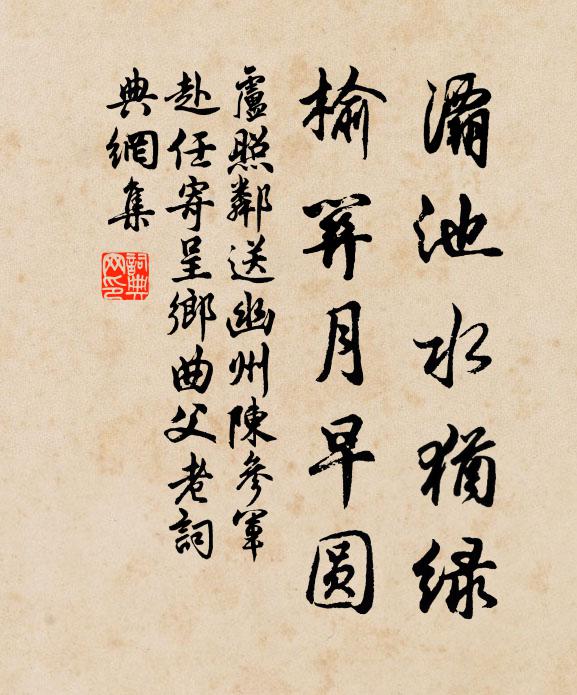 灞池水猶绿
榆關月早圆
盧照鄰送幽州陳參軍
赴任寄呈鄉曲父老詞
典網集
詞典网印